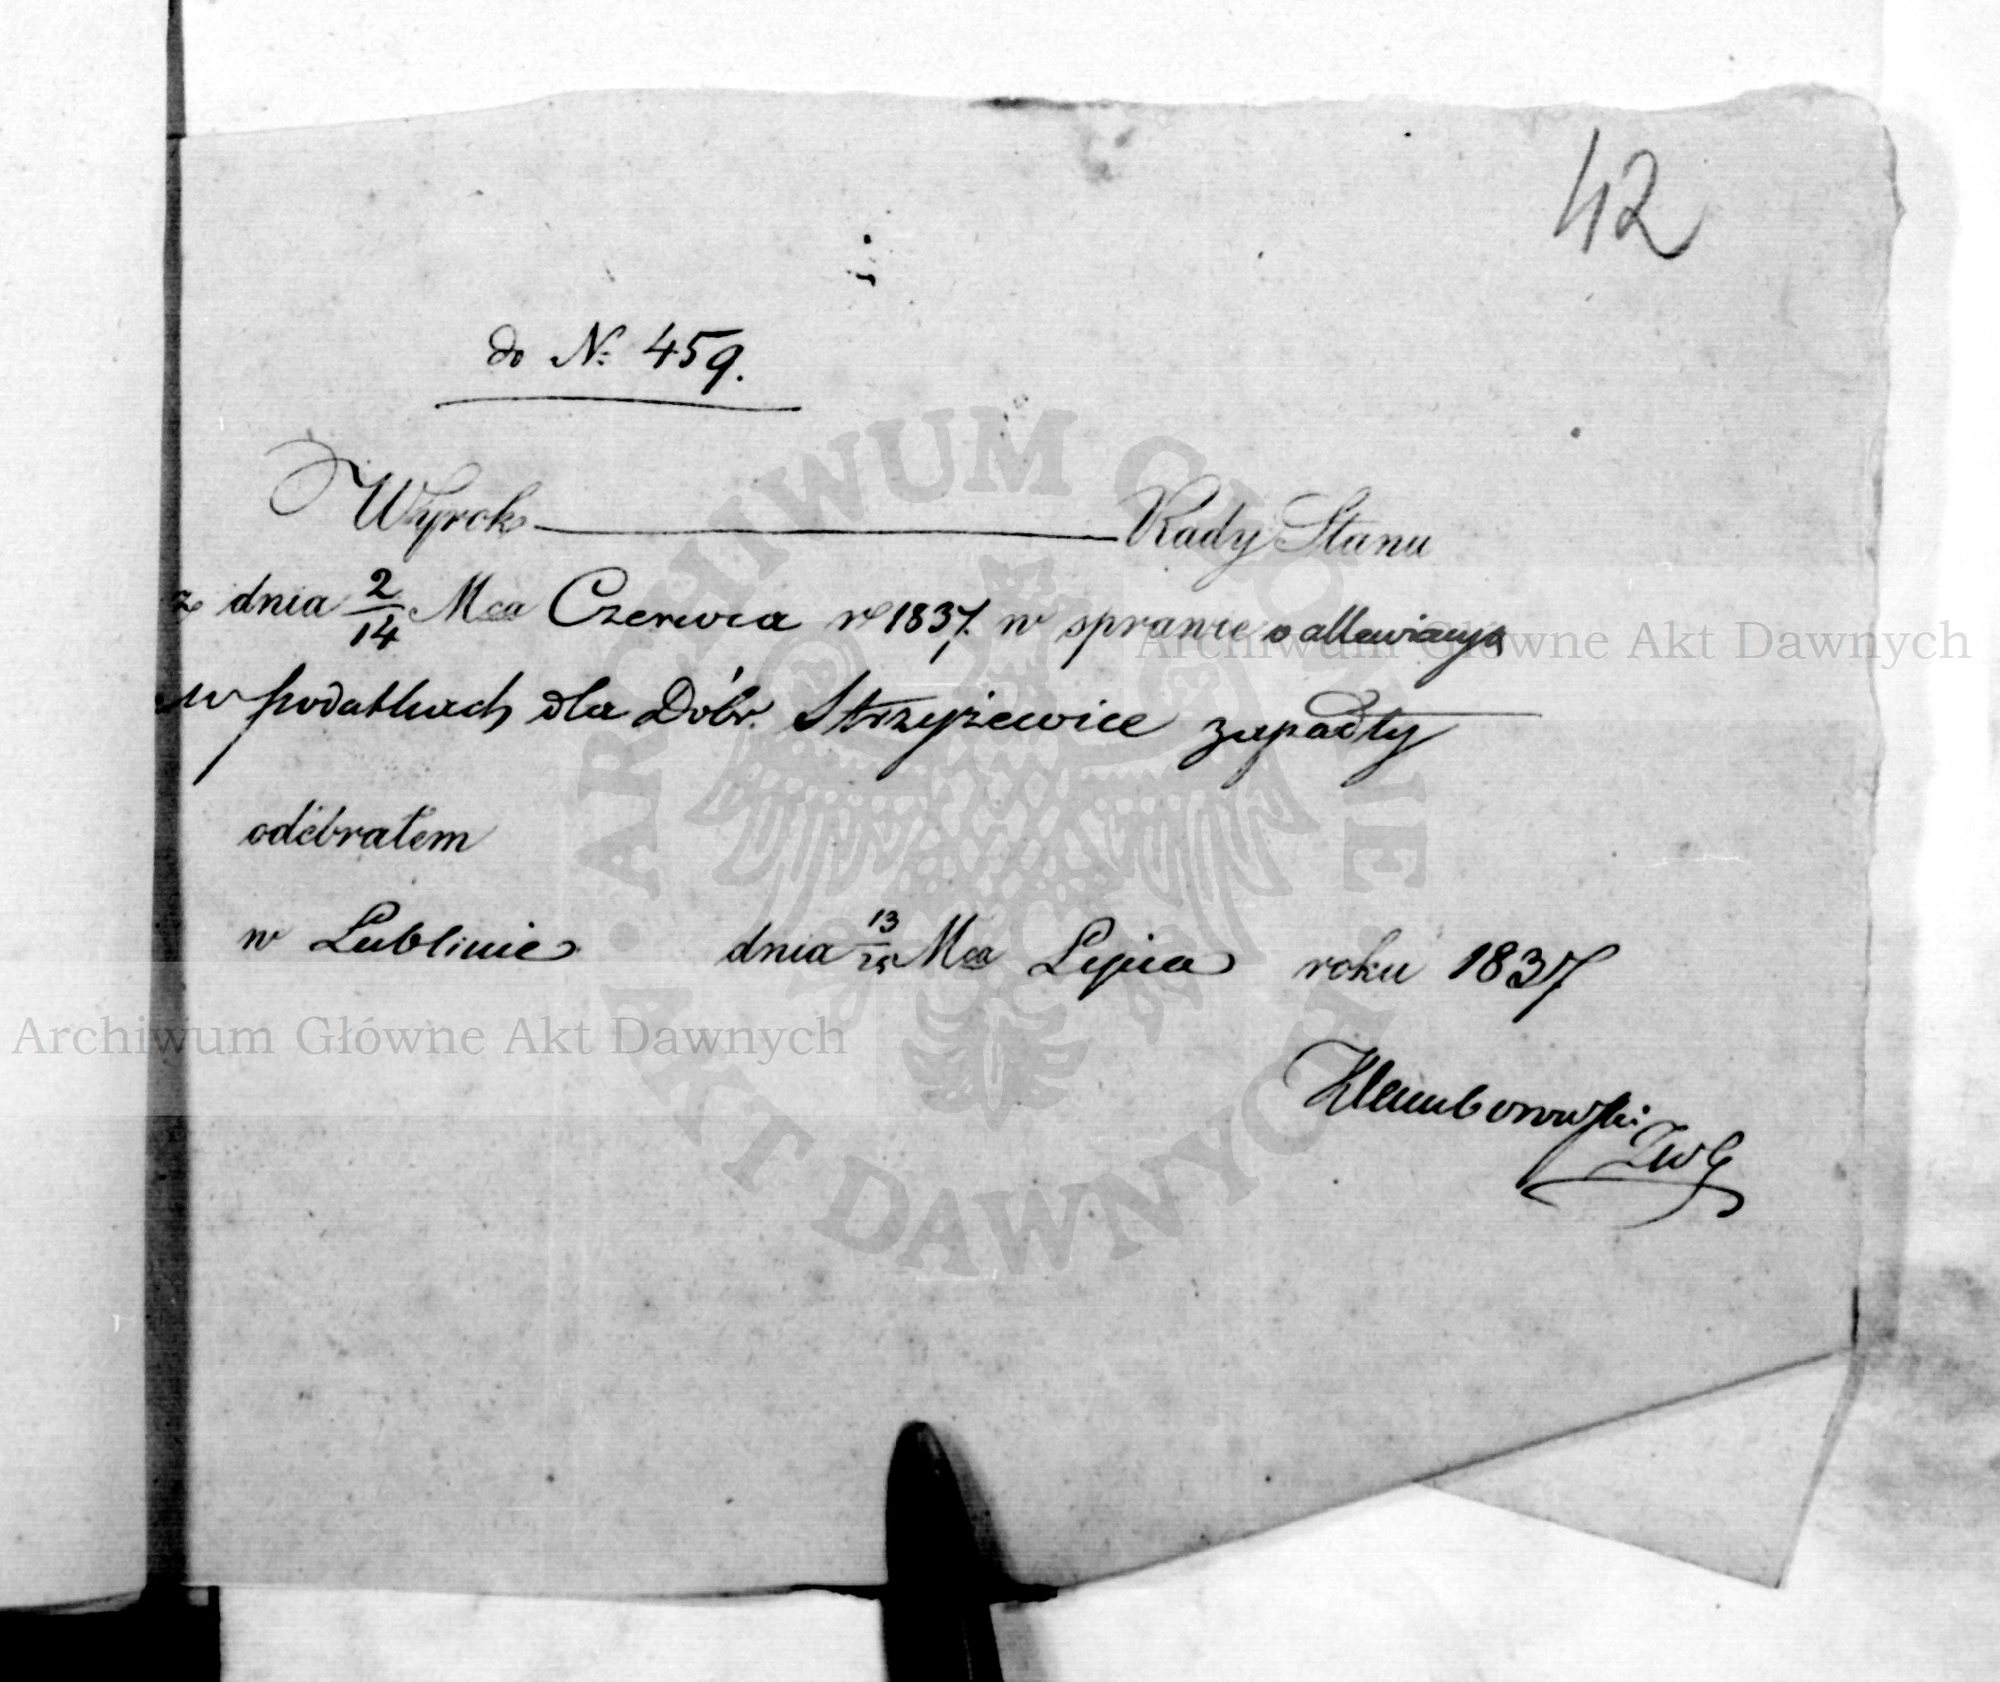 42
do N: 459.
Wyrok Rady Stanu
z dnia 2/14 Mca Czerwca re 1837. w sprawie o allewiacyą
w podatkach dla Dóbr. Strzyżewice zapadły
odebrałem
w Lublinie dnia 13/25 Mca Lipca roku 1837
ARCHIWUM GŁÓWNE AKT DAWNYCH
Archiwum Główne Akt Dawnych
Archiwum Główne Akt Dawnych